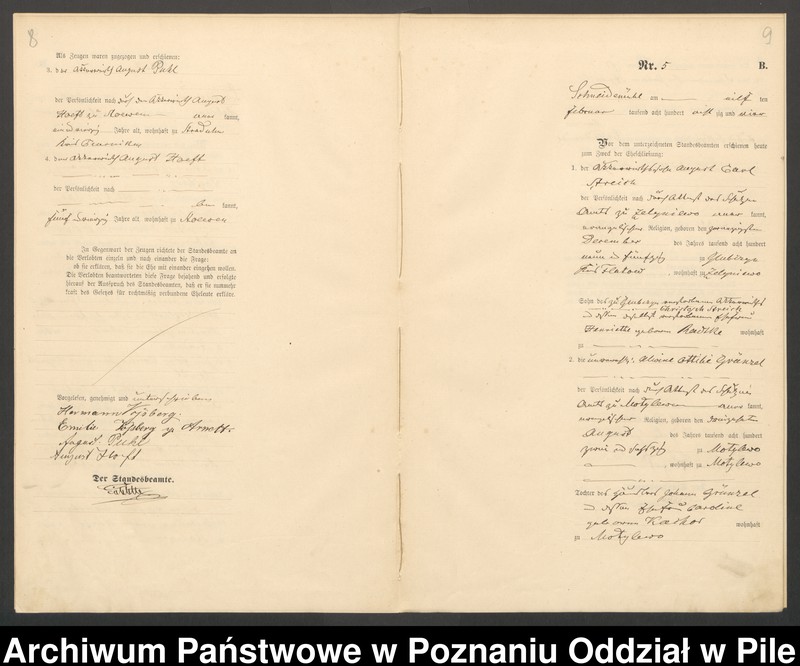 8
Als Zeugen waren zugezogen und erschienen:
3. der Ackerwirth August Puhl
der Persönlichkeit nach durch den Ackerwirth August
Haeft zu kannt,
Jahre alt, wohnhaft zu
4. der Ackerwirth August Haeft
der Persönlichkeit nach
kannt,
fünf Jahre alt, wohnhaft zu
In Gegenwart der Zeugen richtete der Standesbeamte an
die Verlobten einzeln und nach einander die Frage:
ob sie erklären, daß sie die Ehe mit einander eingehen wollen.
Die Verlobten beantworteten diese Frage bejahend und erfolgte
hierauf der Ausspruch des Standesbeamten, daß er sie nunmehr
kraft des Gesetzes für rechtmäßig verbundene Eheleute erkläre.
Vorgelesen, genehmigt und unterschrieben
Hermann
Emilie
August
August Haeft
Der Standesbeamte.
9
Nr. 5 B.
Schneidemühl am elf ten
Februar tausend acht hundert acht zig und vier
Vor dem unterzeichneten Standesbeamten erschienen heute
zum Zweck der Eheschließung:
1. der August Carl
Streich
der Persönlichkeit nach durch Attest des Schulzen
Amts zu Zelgniewo aner kannt,
evangelischer Religion, geboren den zwanzigsten
December des Jahres tausend acht hundert
neun und fünfzig zu
Kreis Flatow, wohnhaft zu Zelgniewo
Sohn des zu verstorbenen Ackerwirths
Christoph Streich
und dessen daselbst verstorbenen Ehefrau
Henriette geborenen Radtke wohnhaft
zu
2. die unverehelichte Ottilie Gränzel
der Persönlichkeit nach durch Attest des Schulzen
Amts zu Motylewo aner kannt,
evangelischer Religion, geboren den
August des Jahres tausend acht hundert
zwei und sechszig zu Motylewo
, wohnhaft zu Motylewo
Tochter des Johann Gränzel
und dessen Ehefrau Caroline
geborenen wohnhaft
zu Motylewo
Archiwum Państwowe w Poznaniu Oddział w Pile